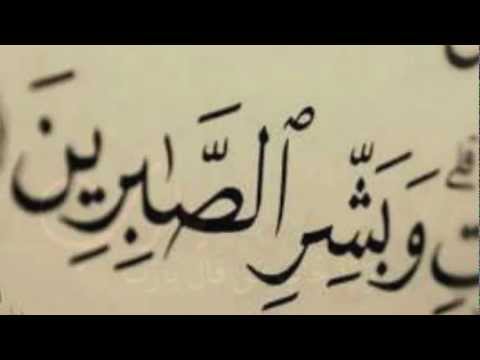 وَبَشِّرِ ٱلصَّٰبِرِينَ